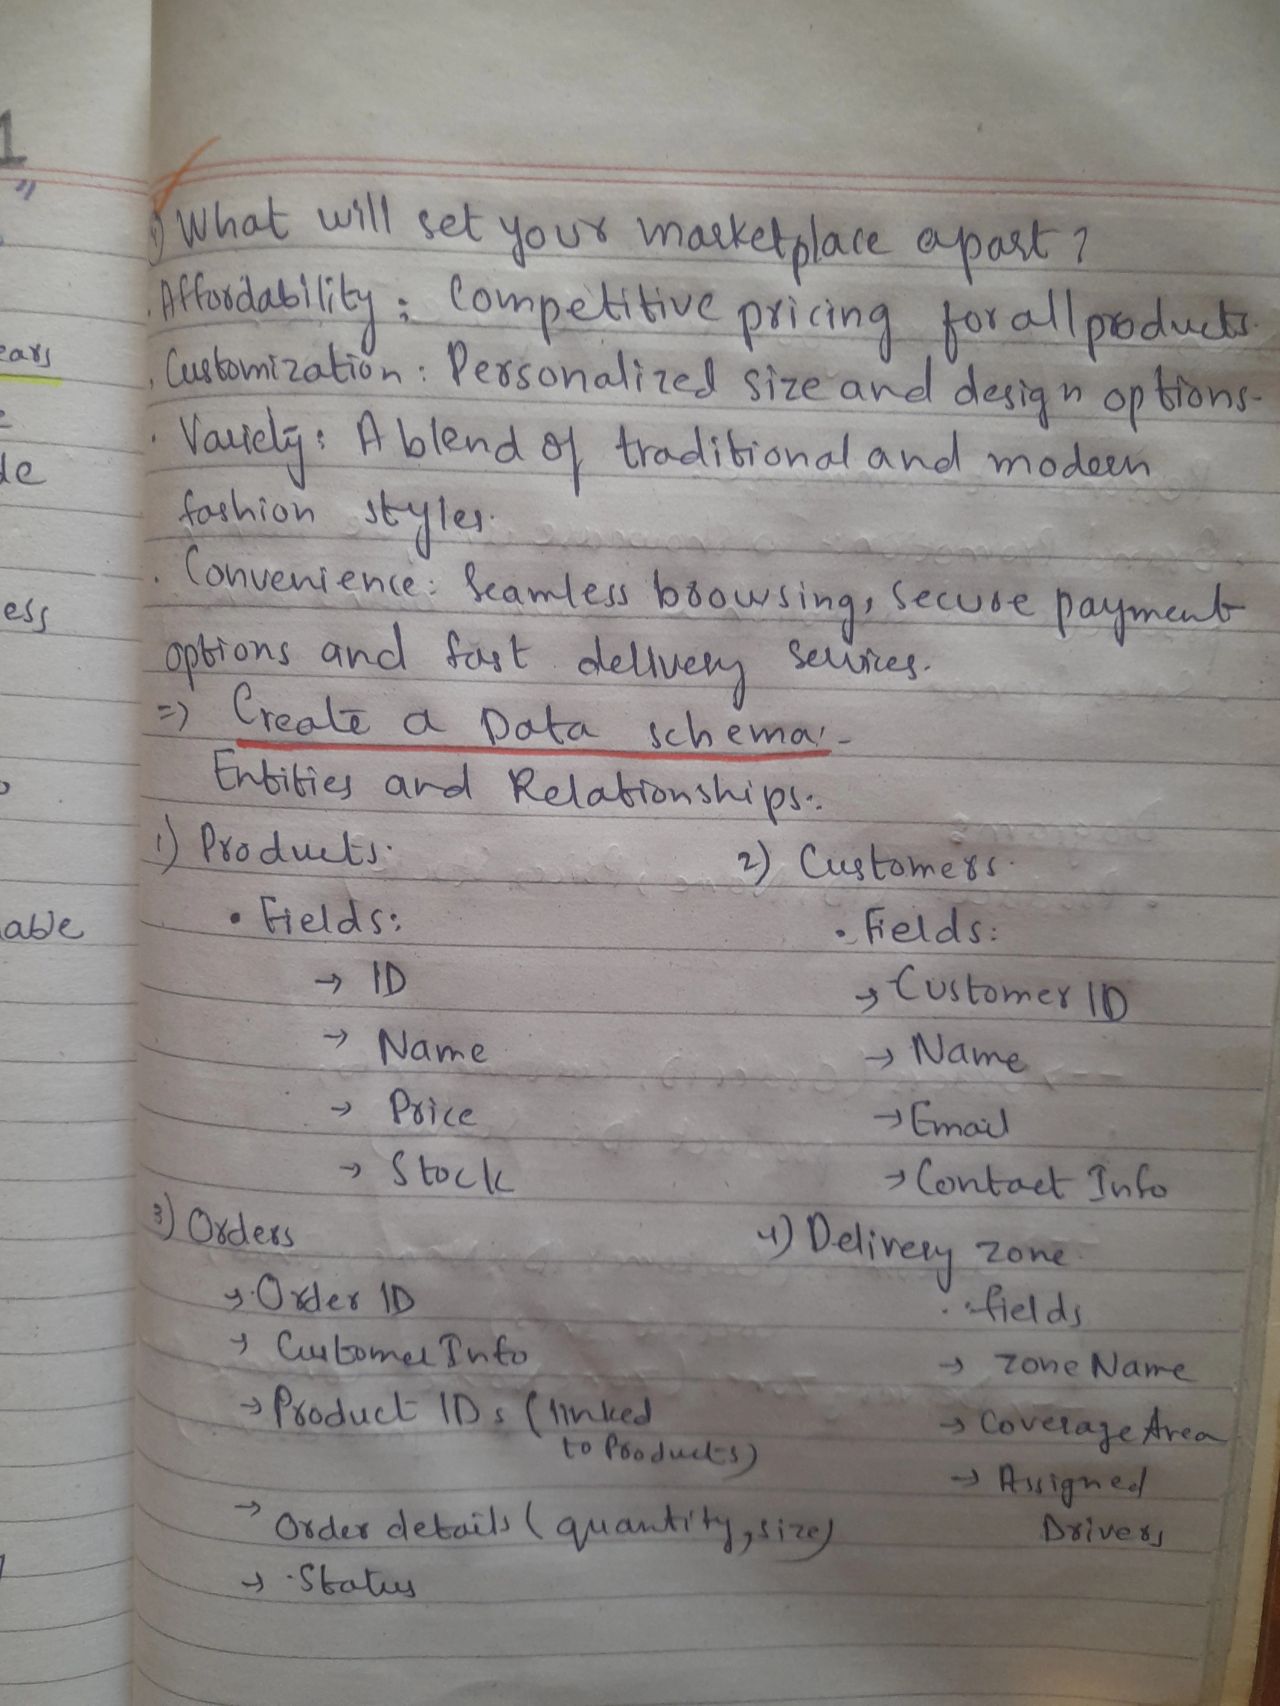 1
"
ears
de
ess
able
What will set your marketplace apart?
. Affordability: Competitive pricing for all products.
. Customization: Personalized size and design options.
. Variety: A blend of traditional and modern
fashion styles.
. Convenience: Seamless browsing, secure payment
options and fast delivery services.
=> Create a Data schema:-
Entities and Relationships:.
1) Products.
• Fields:
→ ID
→ Name
→ Price
→ Stock
2) Customers.
• Fields:
→ Customer ID
→ Name
→ Email
→ Contact Info
3) Orders
→ Order ID
→ Customer Info
→ Product IDs (linked
to Products)
→ Order details (quantity, size)
→ Status
4) Delivery zone.
. fields
→ zone Name
→ Coverage Area
→ Assigned
Drivers